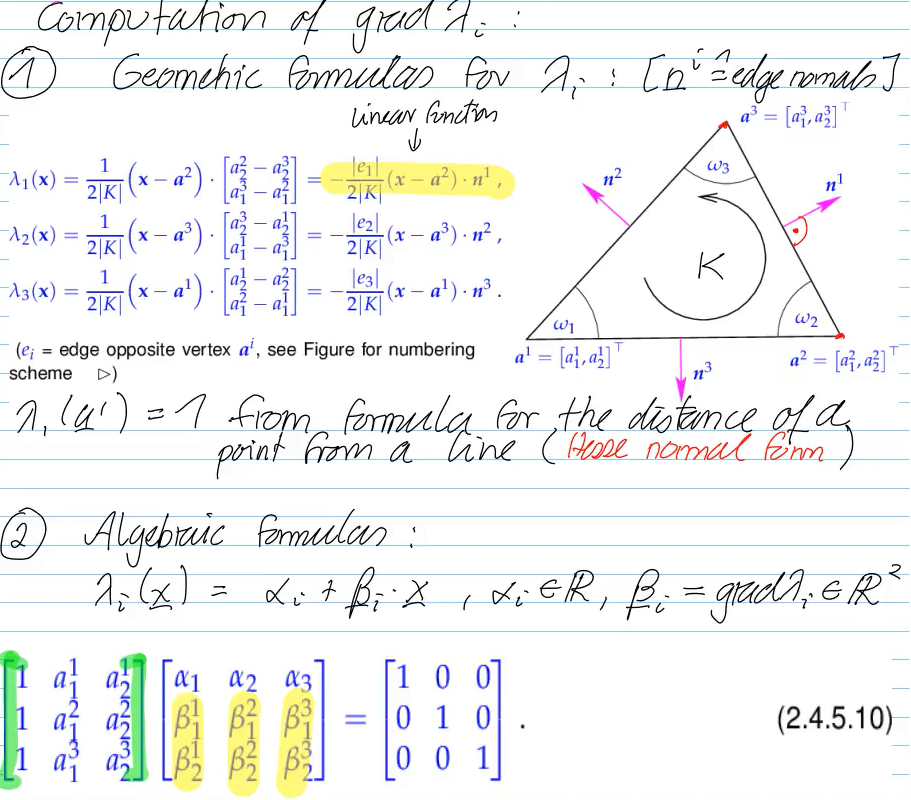 Computation of grad λᵢ :
① Geometric formulas for λᵢ : [nⁱ ≙ edge normals]
linear function
↓
λ₁(x) = 1/(2|K|) (x − a²) · [a₂² − a₂³; a₁³ − a₁²] = − |e₁|/(2|K|) (x − a²) · n¹ ,
λ₂(x) = 1/(2|K|) (x − a³) · [a₂³ − a₂¹; a₁¹ − a₁³] = − |e₂|/(2|K|) (x − a³) · n² ,
λ₃(x) = 1/(2|K|) (x − a¹) · [a₂¹ − a₂²; a₁² − a₁¹] = − |e₃|/(2|K|) (x − a¹) · n³ .
(eᵢ = edge opposite vertex aⁱ, see Figure for numbering
scheme ▷)
a³ = [a₁³, a₂³]ᵀ
ω₃
n²
n¹
K
ω₁
ω₂
a¹ = [a₁¹, a₂¹]ᵀ
a² = [a₁², a₂²]ᵀ
n³
λ₁(a¹) = 1 from formula for the distance of a
point from a line (Hesse normal form)
② Algebraic formulas :
λᵢ(x) = αᵢ + βᵢ · x , αᵢ ∈ ℝ, βᵢ = grad λᵢ ∈ ℝ²
[1 a₁¹ a₂¹; 1 a₁² a₂²; 1 a₁³ a₂³] [α₁ α₂ α₃; β₁¹ β₁² β₁³; β₂¹ β₂² β₂³] = [1 0 0; 0 1 0; 0 0 1] . (2.4.5.10)